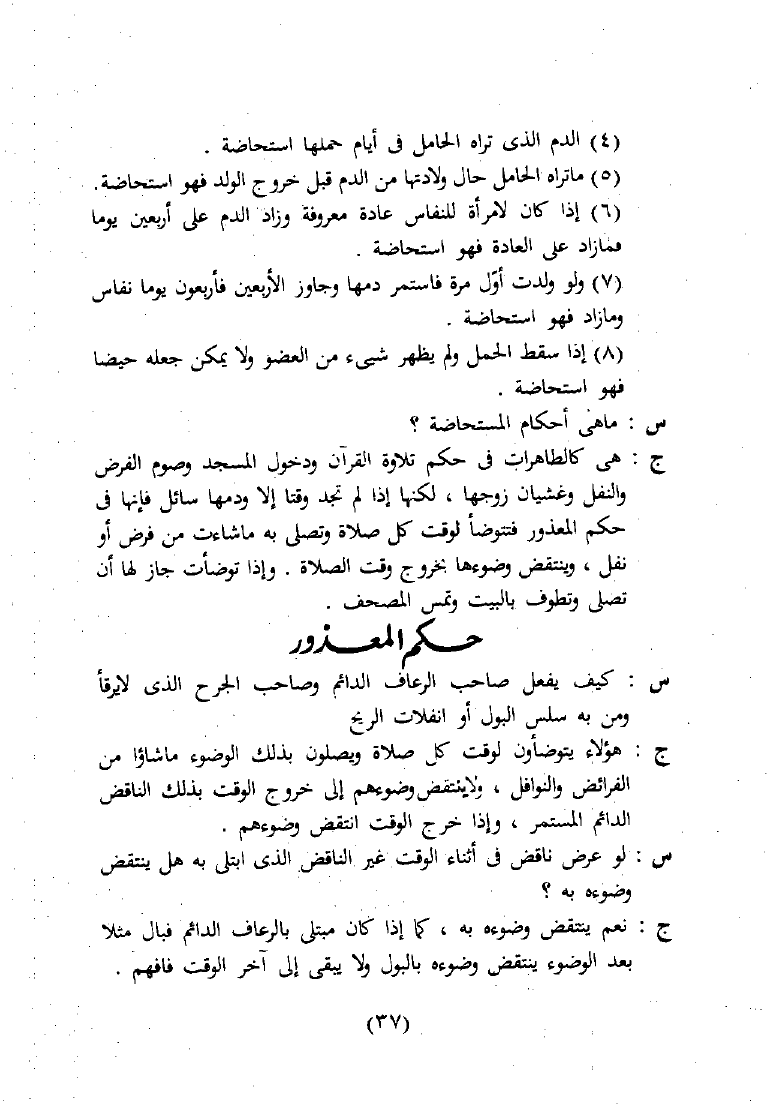 (٤) الدم الذى تراه الحامل فى أيام حملها استحاضة .
(٥) ماتراه الحامل حال ولادتها من الدم قبل خروج الولد فهو استحاضة.
(٦) إذا كان لامرأة للنفاس عادة معروفة وزاد الدم على أربعين يوما
فمازاد على العادة فهو استحاضة .
(٧) ولو ولدت أوّل مرة فاستمر دمها وجاوز الأربعين فأربعون يوما نفاس
ومازاد فهو استحاضة .
(٨) إذا سقط الحمل ولم يظهر شيىء من العضو ولا يمكن جعله حيضا
فهو استحاضة .
س : ماهى أحكام المستحاضة ؟
ج : هى كالطاهرات فى حكم تلاوة القرآن ودخول المسجد وصوم الفرض
والنفل وغشيان زوجها ، لكنها إذا لم تجد وقتا إلا ودمها سائل فإنها فى
حكم المعذور فتتوضأ لوقت كل صلاة وتصلى به ماشاءت من فرض أو
نفل ، وينتقض وضوءها بخروج وقت الصلاة . وإذا توضأت جاز لها أن
تصلى وتطوف بالبيت وتمس المصحف .
حكم المعذور
س : كيف يفعل صاحب الرعاف الدائم وصاحب الجرح الذى لايرقأ
ومن به سلس البول أو انفلات الريح
ج : هؤلاء يتوضأون لوقت كل صلاة ويصلون بذلك الوضوء ماشاؤا من
الفرائض والنوافل ، ولاينتقض وضوءهم إلى خروج الوقت بذلك الناقض
الدائم المستمر ، وإذا خرج الوقت انتقض وضوءهم .
س : لو عرض ناقض فى أثناء الوقت غير الناقض الذى ابتلى به هل ينتقض
وضوءه به ؟
ج : نعم ينتقض وضوءه به ، كما إذا كان مبتلى بالرعاف الدائم فبال مثلا
بعد الوضوء ينتقض وضوءه بالبول ولا يبقى إلى آخر الوقت فافهم .
(٣٧)